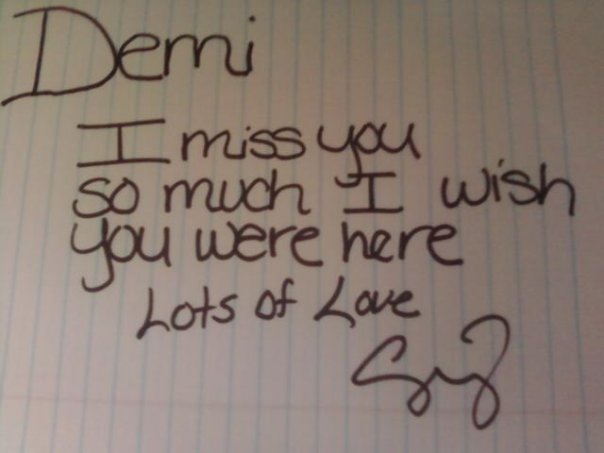 Demi
I miss you
so much I wish
you were here
Lots of Love